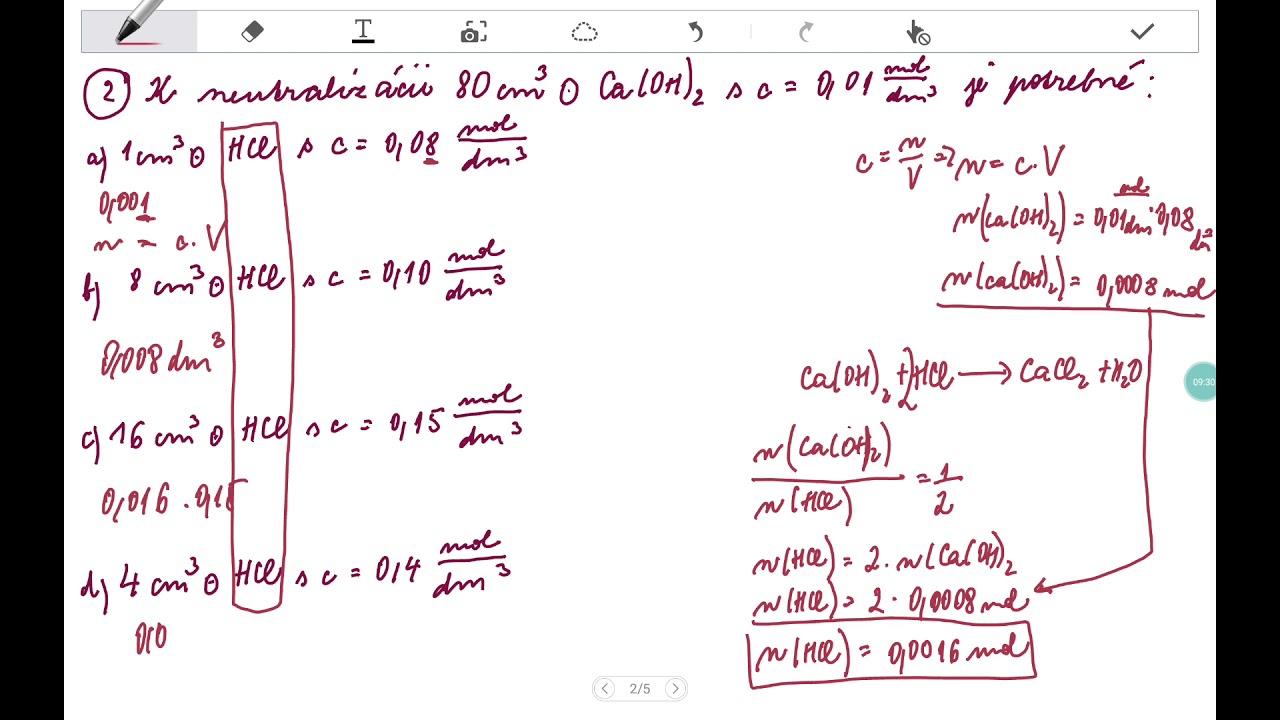 ② K neutralizácii 80 cm³ ⊙ Ca(OH)₂ s c = 0,01 mol/dm³ je potrebné :
a) 1 cm³ ⊙ HCl s c = 0,08 mol/dm³
0,001
n = c . V
b) 8 cm³ ⊙ HCl s c = 0,10 mol/dm³
0,008 dm³
c) 16 cm³ ⊙ HCl s c = 0,15 mol/dm³
0,016 . 0,15
d) 4 cm³ ⊙ HCl s c = 0,4 mol/dm³
0,0
c = n/V => n = c . V
n(Ca(OH)₂) = 0,01 mol/dm³ . 0,08 dm³
n(Ca(OH)₂) = 0,0008 mol
Ca(OH)₂ + 2HCl ⟶ CaCl₂ + H₂O
n(Ca(OH)₂)/n(HCl) = 1/2
n(HCl) = 2 . n(Ca(OH)₂
n(HCl) = 2 . 0,0008 mol
n(HCl) = 0,0016 mol
T
09:30
2/5